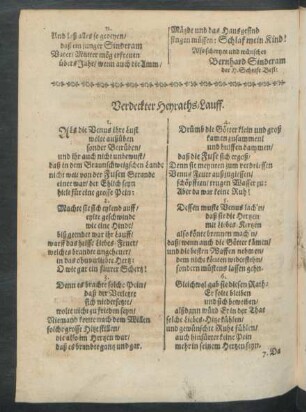 11.
Und laß alles so gedeyen/
daß ein junger Sinderam
Vater/ Mutter mög erfreuen
übers Jahr/ wenn auch die Amm/
Mägde und das Hausgesind
singen müssen: Schlaf mein Kind!
Also schertzen und wünschet
Bernhard Sinderam
der H. Schrifft Befl.
Verdeckter Heyraths-Lauff.
1.
Als die Venus ihre Lust
wolte ausüben
sonder Betrüben/
und ihr auch nicht unbewust/
daß in dem Braunschweigschen Lande
nicht weit von der Fulsen Strande
einer war/ der Ehlich seyn
hielt für eine grosse Pein:
2.
Machte sie sich eylend auff/
eylte geschwinde
wie eine Hinde/
biß gerichtet war ihr Lauff:
warff das heisse Liebes-Feuer/
welches brandte ungeheuer/
in das ohnverliebte Hertz:
O wie gar ein saurer Schertz!
3.
Denn es brachte solche Pein/
daß der Verletzte
sich wiedersetzte/
wolte nicht zu frieden seyn:
Niemand konte nach dem Willen
solche grosse Hitze stillen/
die alda im Hertzen war/
daß es brandte gantz und gar.
4.
Drümb die Götter klein und groß
kamen zusammen/
und hulffen dammen/
daß die Fluß sich ergoß/
Denn sie meynten zum verdriessen
Venus Feuer auszugiessen/
schöpfften/ trugen Wasser zu:
Aber da war keine Ruh!
5.
Dessen muste Venus lach'n/
daß sie die Hertzen
mit Liebes-Kertzen
also könte brennen mach'n/
daß/ wenn auch die Götter kämen/
und die besten Waffen nehmen/
dem nicht könten wiederstehn/
sondern müstens lassen gehn.
6.
Gleichwol gab sie diesen Rath:
Er solte bleiben
und sich beweiben/
alsdann würd Er in der That
solche Liebes-Hitze kühlen/
und gewünschte Ruhe fühlen/
auch hinführter keine Pein
mehr in seinem Hertzen seyn.
7. Da